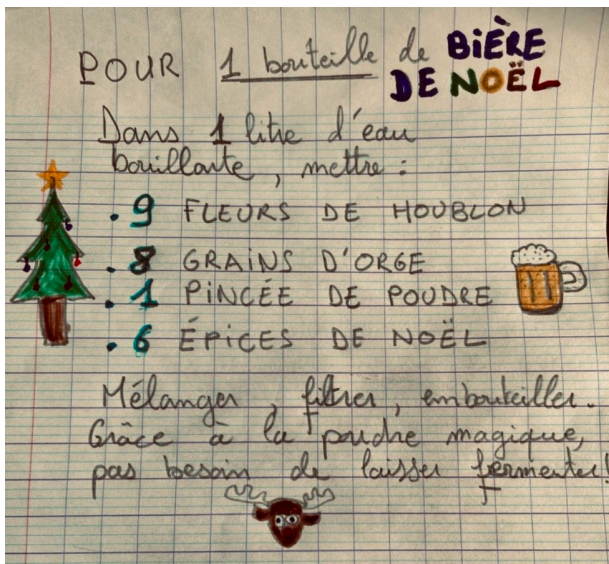 POUR 1 bouteille de BiÈRE
DE NOËL
Dans 1 litre d'eau
bouillante, mettre :
. 9 FLEURS DE HOUBLON
. 8 GRAINS D'ORGE
. 1 PiNCÉE DE POUDRE
. 6 ÉPiCES DE NOËL
Mélanger, filtrer, embouteiller.
Grâce à la poudre magique,
pas besoin de laisser fermenter!